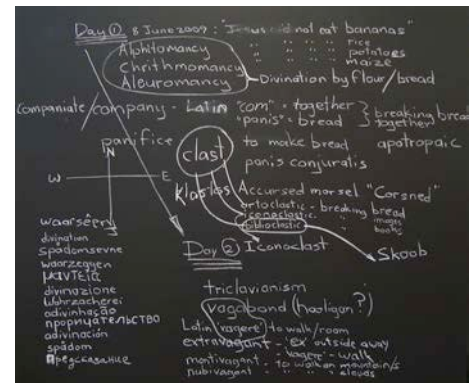 Day ① 8 June 2009: "Jesus did not eat bananas"
" " " " rice
Alphitomancy " " " " potatoes
Chrithmomancy " " " " maize
Aleuromancy
Divination by flour/bread
Companiate/company - Latin "com" = together
"panis" = bread
breaking bread together
panifice to make bread apotropaic
panis conjuralis
clast
N
W E
Klastos Accursed morsel "Corsned"
artoclastic - breaking bread
iconoclastic - " images
biblioclastic " books
Day ② Iconoclast
Skoob
waarsêery
divination
spadomsevne
waarzeggen
μαντεία
divinazione
Wahrzacherei
adivinhação
прорицательство
adivinación
spådom
Предсказание
triclavianism
vagabond (hooligan?)
Latin 'vagere' to walk/roam
extravagant - 'ex' outside away
'vagere' - walk
montivagant - to walk on mountain/s
nubivagant - " " " clouds